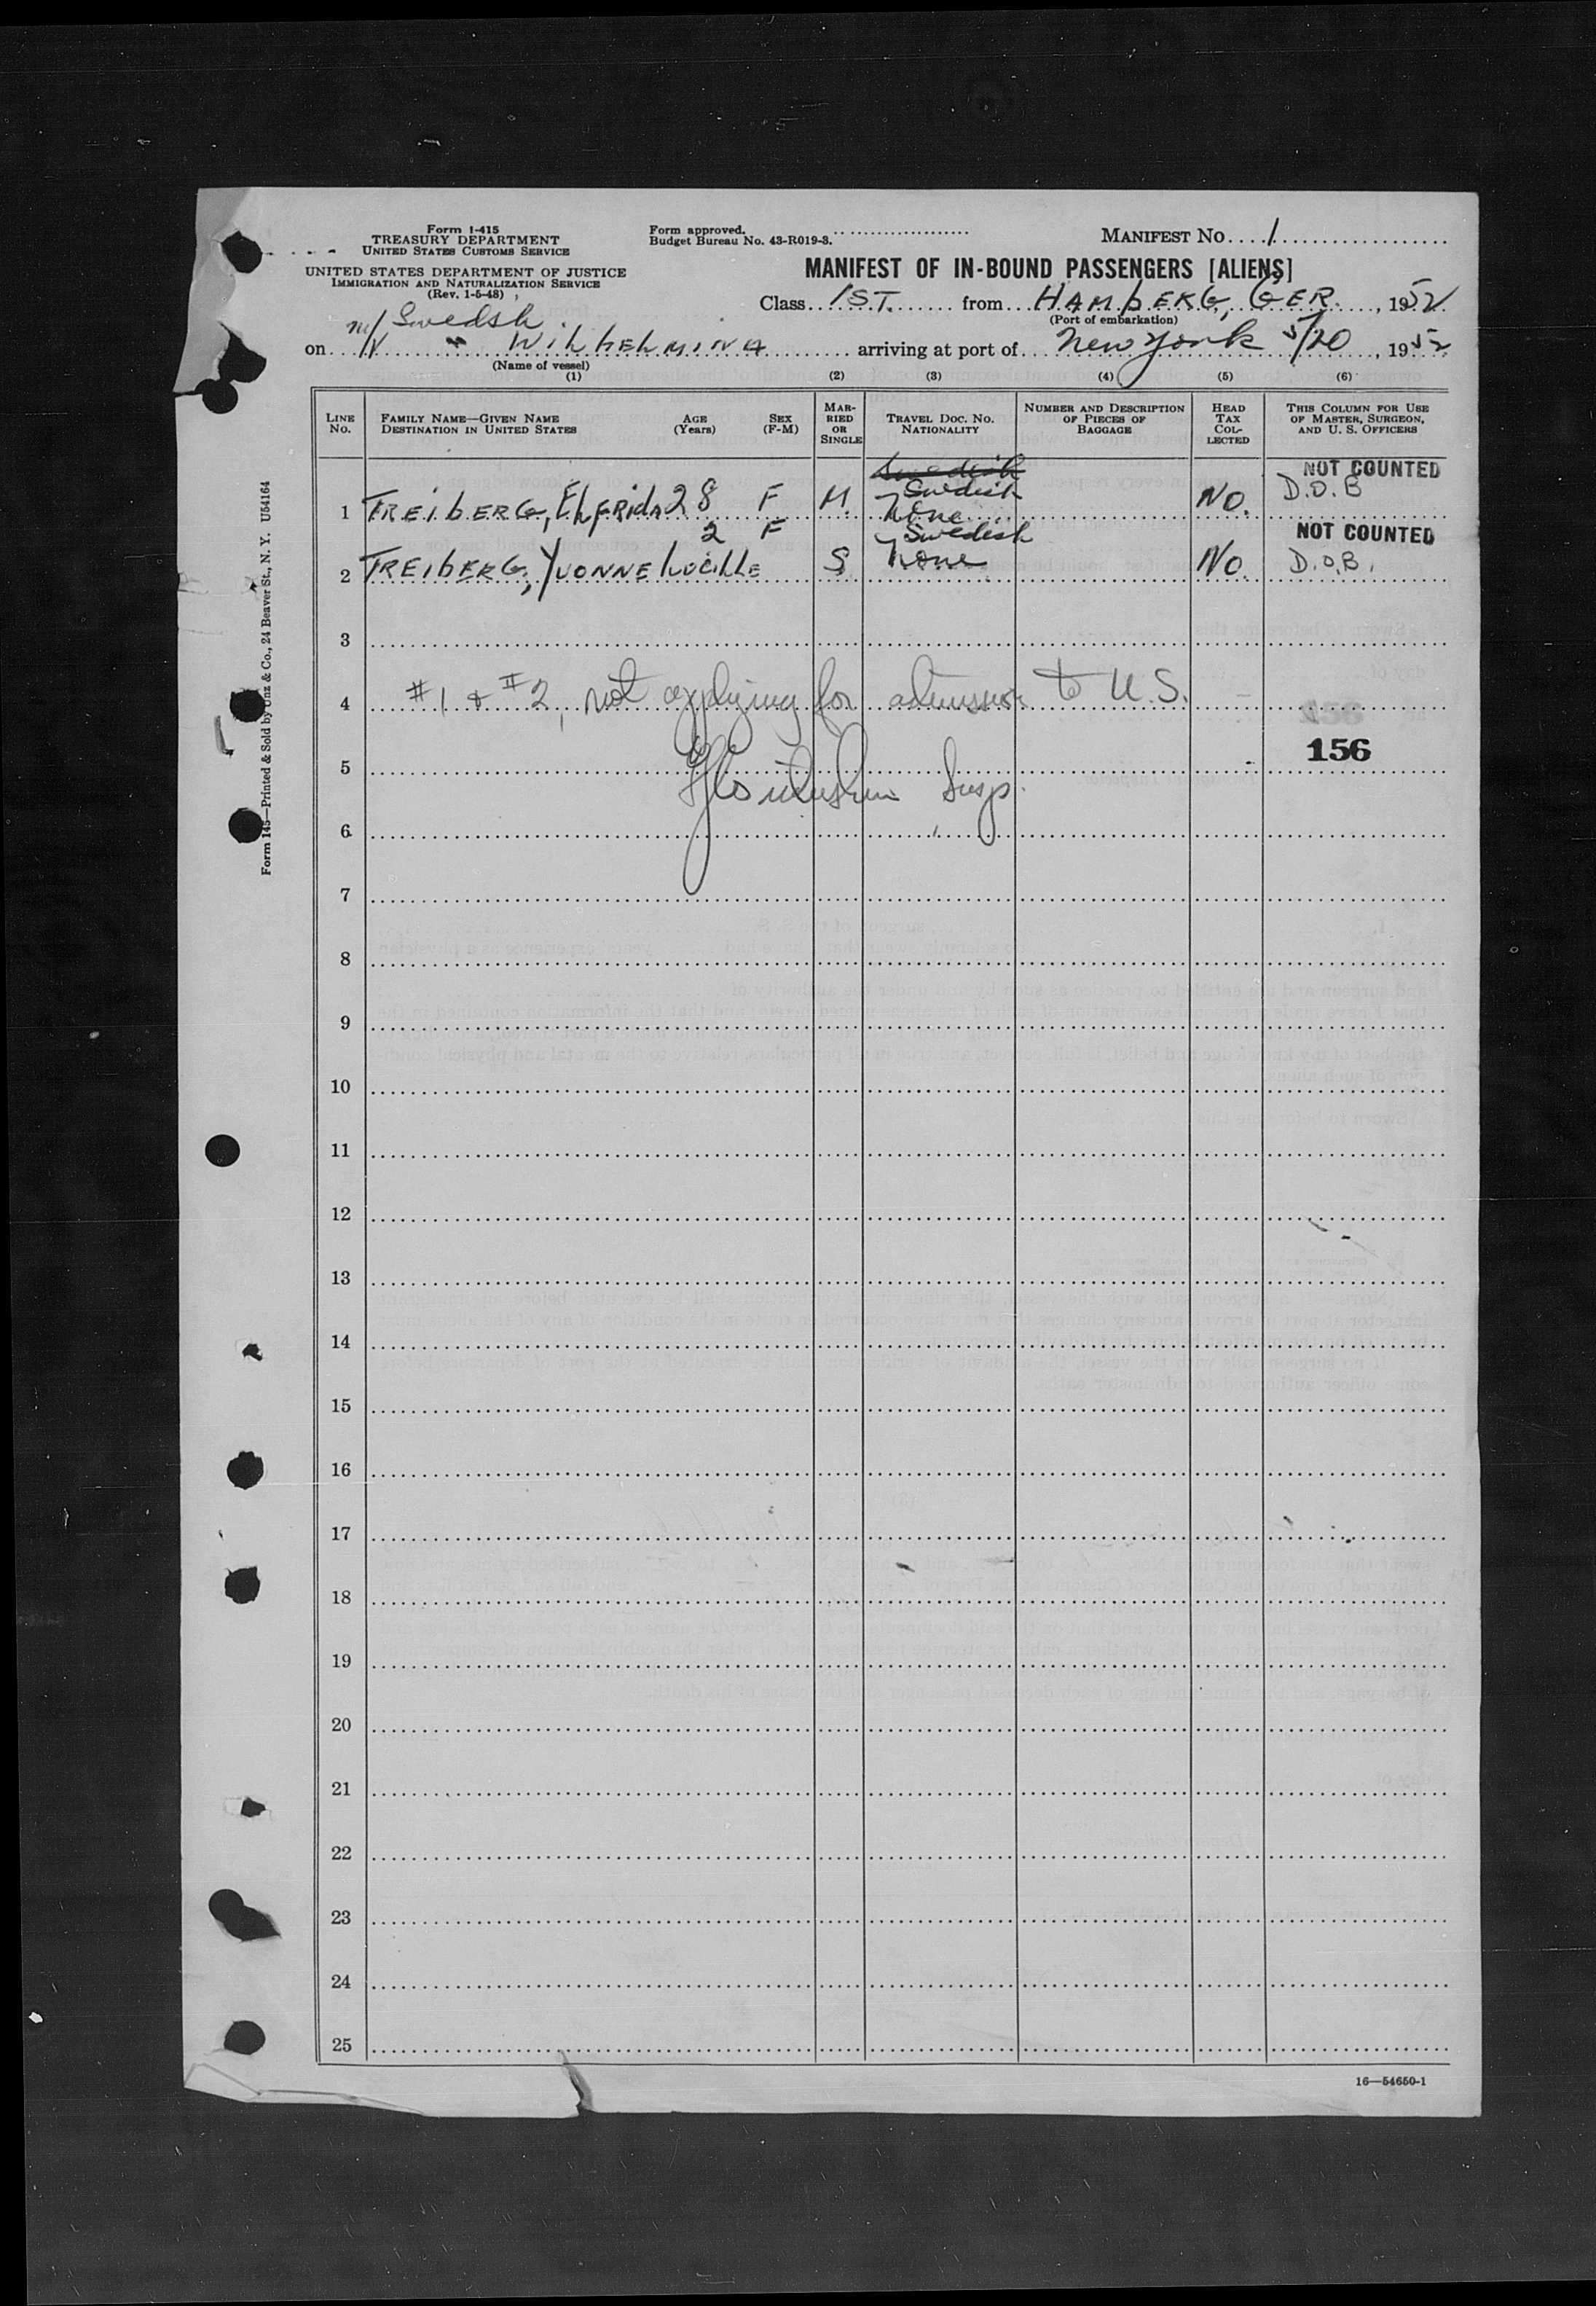 Form I-415
TREASURY DEPARTMENT
UNITED STATES CUSTOMS SERVICE
UNITED STATES DEPARTMENT OF JUSTICE
IMMIGRATION AND NATURALIZATION SERVICE
(Rev. 1-5-48)
Form approved.
Budget Bureau No. 43-R019-3.
MANIFEST NO. 1
MANIFEST OF IN-BOUND PASSENGERS [ALIENS]
Class 1ST. from HAMbERG, GER. , 1952
(Port of embarkation)
Swedsh
on WILhELMINA arriving at port of New York 5/20, 1952
(Name of vessel)
(1) (2) (3) (4) (5) (6)
LINE NO. FAMILY NAME—GIVEN NAME DESTINATION IN UNITED STATES AGE (Years) SEX (F-M) MARRIED OR SINGLE TRAVEL DOC. NO. NATIONALITY NUMBER AND DESCRIPTION OF PIECES OF BAGGAGE HEAD TAX COLLECTED THIS COLUMN FOR USE OF MASTER, SURGEON, AND U. S. OFFICERS
Swedish NOT COUNTED
1 FREIbERG, ELFRIDA 28 F M. Swedish None No. D.O.B
2 F Swedish NOT COUNTED
2 FREIbERG, YVONNE LUCILLE S None No. D.O.B.
3
4 #1 & #2, not applying for admission to U.S.
156
5 156
Insp.
6
7
8
9
10
11
12
13
14
15
16
17
18
19
20
21
22
23
24
25
16—54650-1
Form 145—Printed & Sold by Unz & Co., 24 Beaver St., N. Y. U54164